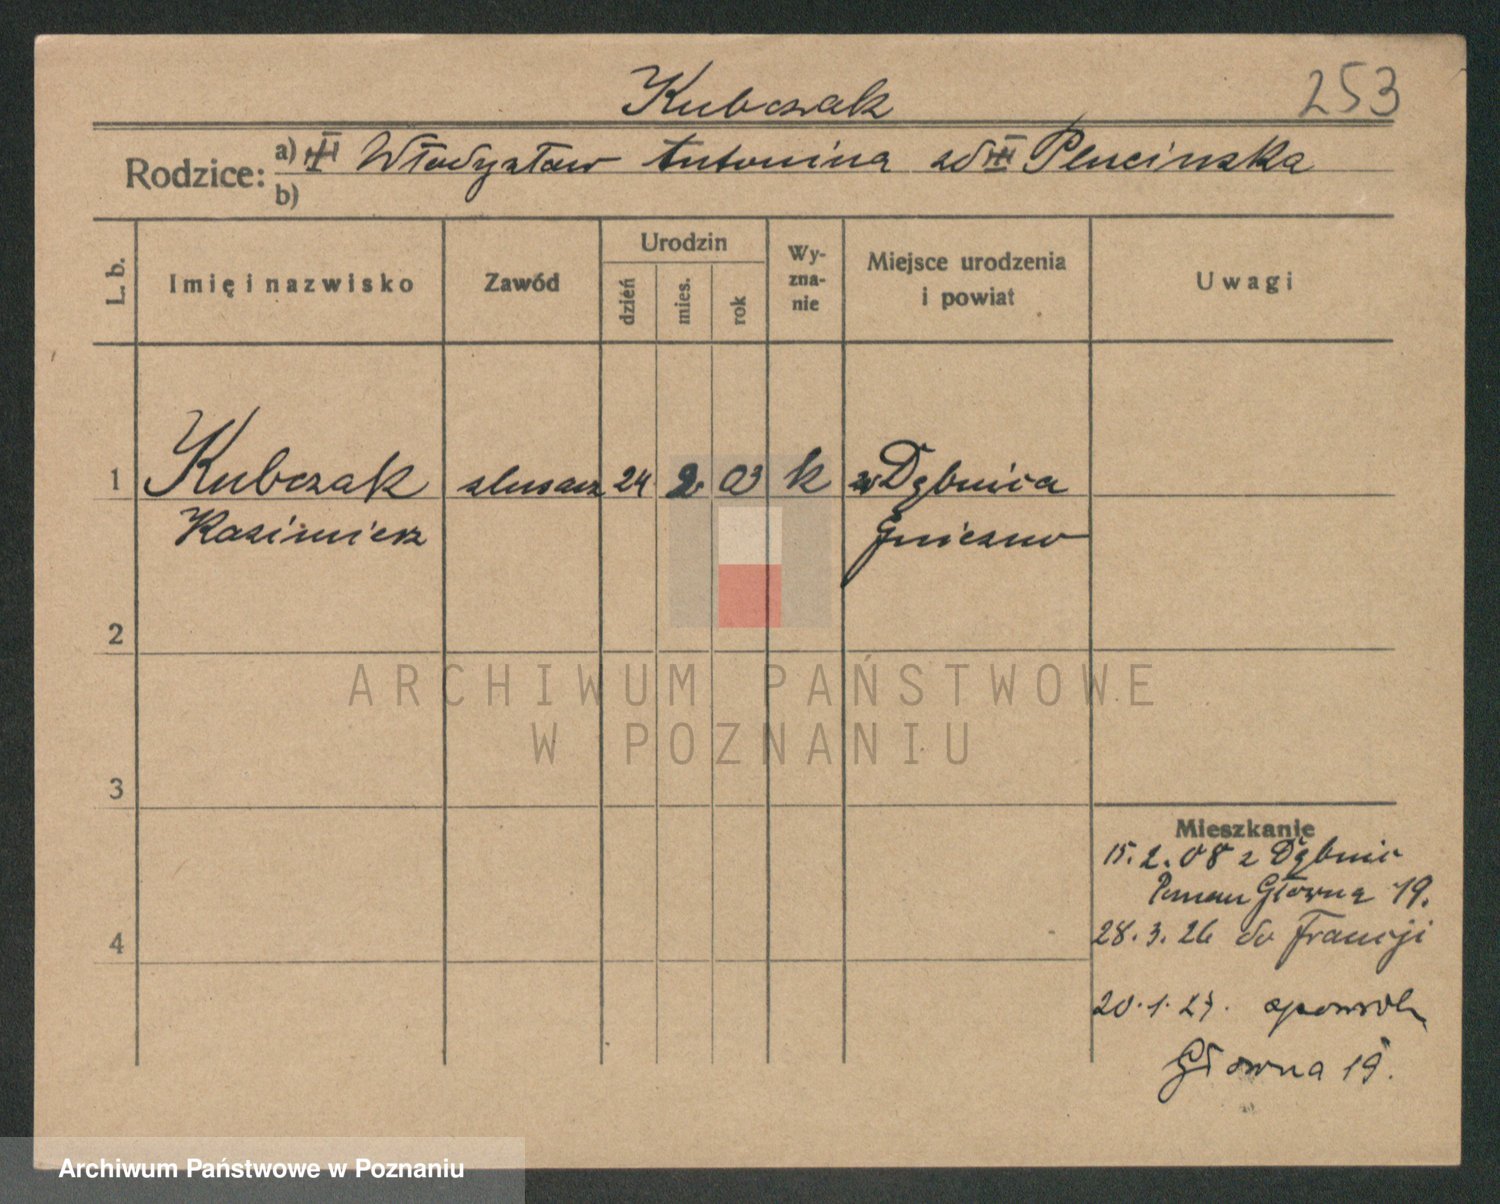 Kubczak
253
Rodzice: a) Władysław Antonina zd Plucinska
b)
L. b.
Imię i nazwisko
Zawód
Urodzin
dzień
mies.
rok
Wy-
zna-
nie
Miejsce urodzenia
i powiat
Uwagi
1 Kubczak ślusarz 24 2 03 k Dębnica
Kazimierz Gniezno
2
3
4
Mieszkanie
15. 2. 08 z Dębnic
Poznan Główna 19.
28. 3. 26 do Francji
20. 1. 27.
Główna 19.
ARCHIWUM PAŃSTWOWE
W POZNANIU
Archiwum Państwowe w Poznaniu